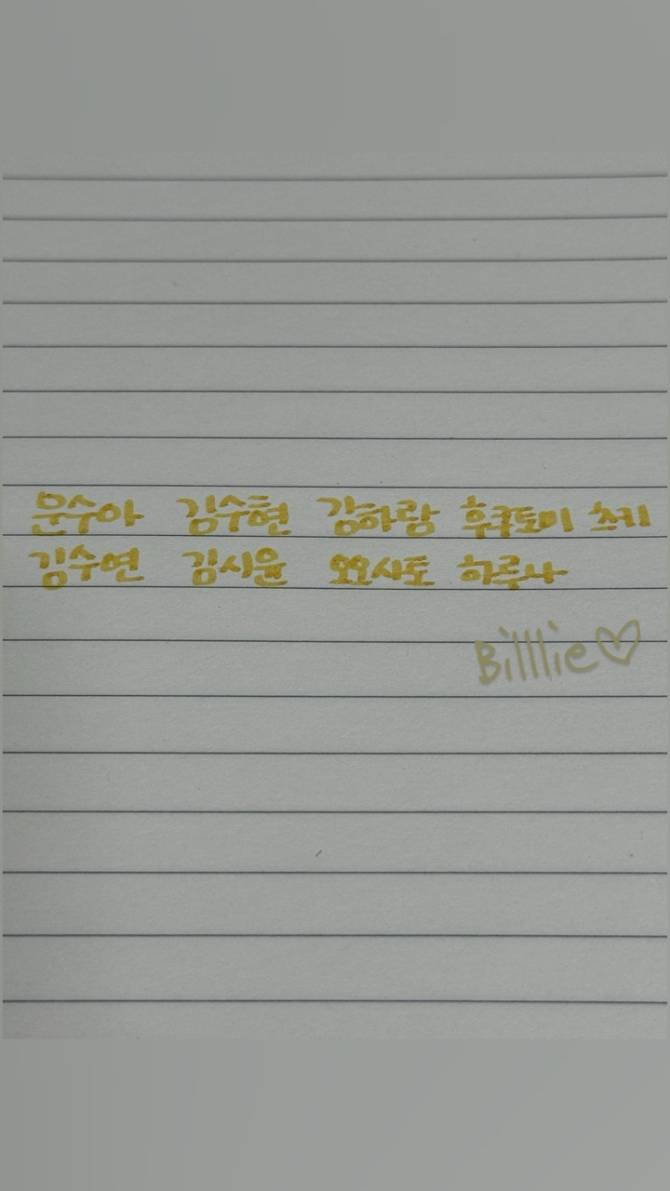 문수아 김수현 김하람 후쿠토미 츠키
김수연 김시윤 오오사토 하루나
Billlie♡